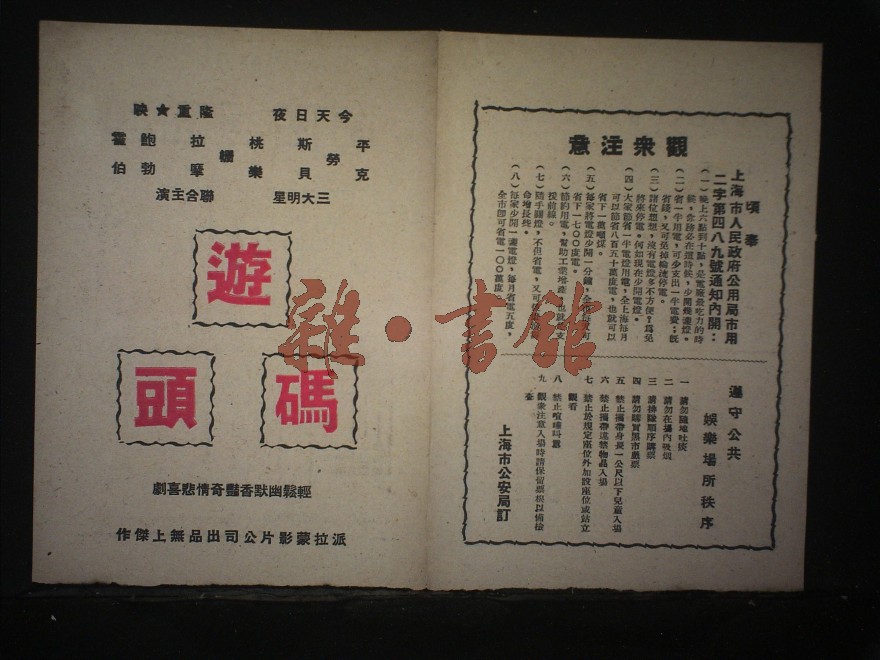 觀衆注意
頃奉
上海市人民政府公用局市用
二字第四八九號通知內開：
（一）晚上六點到十點，是電廠最吃力的時
候，念請必在這時候，少開幾盞燈。
（二）省一半用電，可少支出一半電費；既
省錢，又可免掉輪流停電。
（三）諸位想想，沒有電燈多不方便？爲免
將來停電。何如現在少開電燈。
（四）大家節省一半電燈用電，全上海每月
可以節省八百五十萬度電，也就可以
省下一萬噸煤。
（五）每家將電燈少開一分鐘，全市每天可
省下一七〇〇度電。
（六）節約用電，幫助工業增產，也就是支
援前線。
（七）隨手關燈，不但省電，又可使燈泡壽
命增長些。
（八）每家少開一盞電燈，每月省電五度，
全市即可省電一〇〇萬度。
遵守公共
娛樂場所秩序
一 請勿隨地吐痰
二 請勿在場內吸烟
三 請排隊順序購票
四 請勿購買黑市戲票
五 禁止攜帶身長一公尺以下兒童入場
六 禁止攜帶違禁物品入場
七 禁止於規定座位外加設座位或站立
觀看
八 禁止喧嘩叫囂
九 觀衆注意入場時請保留票根以備檢
查
上海市公安局訂
今天日夜 隆重★映
平克勞斯貝 桃樂珊拉摩 鮑勃霍伯
三大明星 聯合主演
遊
碼頭
輕鬆幽默香豔奇情悲喜劇
派拉蒙影片公司出品無上傑作
雜·書館